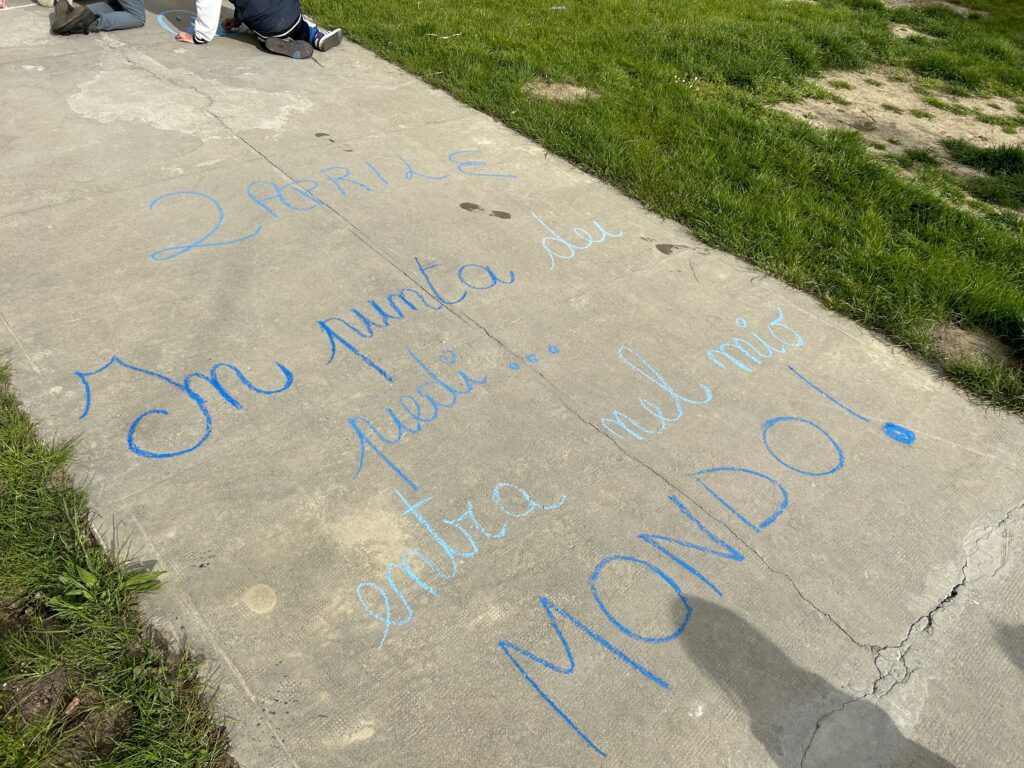 2 APRILE
In punta dei
piedi...
entra nel mio
MONDO!